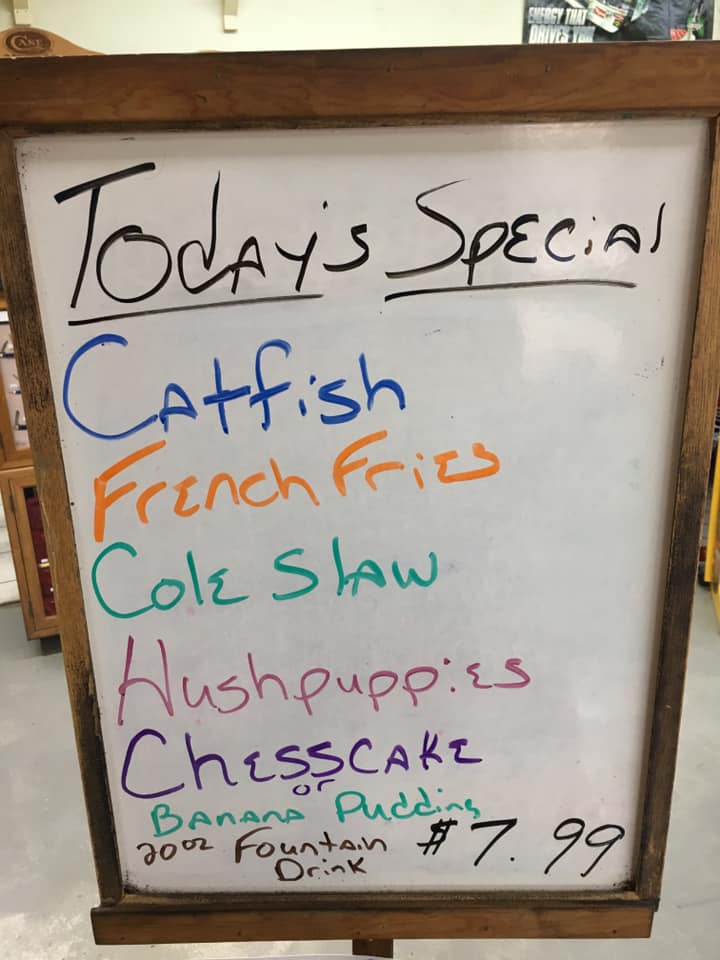 CASE
ENERGY THAT
DRIVES YOU
Today's Special
Catfish
French Fries
Cole Slaw
Hushpuppies
Chesscake
or
Banana Pudding
20oz Fountain
Drink
$7.99